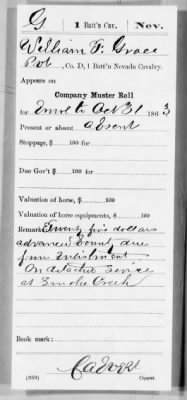 G 1 Batt'n Cav. Nev.
William F. Grace
Pvt, Co. D, 1 Batt'n Nevada Cavalry.
Appears on
Company Muster Roll
for Enrol to Oct 31, 1863
Present or absent absent
Stoppage, $ 100 for
Due Gov't $ 100 for
Valuation of horse, $ 100
Valuation of horse equipments, $ 100
Remarks: Twenty five dollars
advanced bounty due
from Enlistment
On detached service
at Smoke Creek
Book mark:
(358) Copyist.